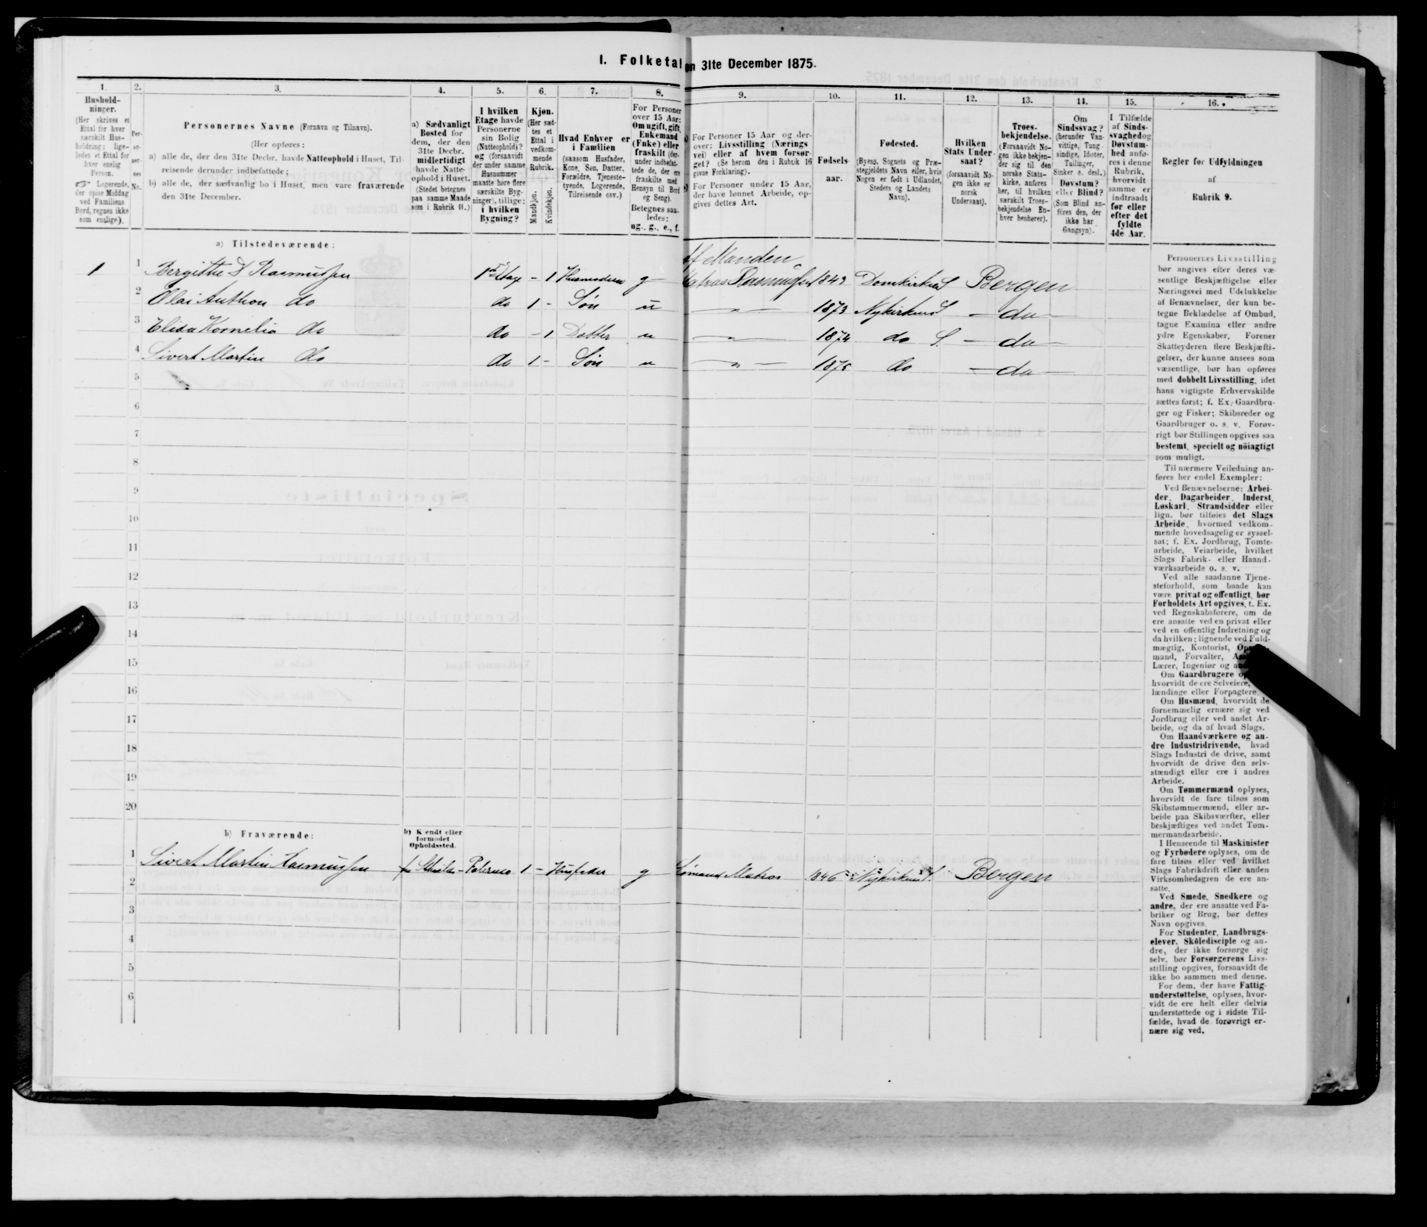 I. Folketal
en 31te December 1875.
1.
2.
3.
4.
5.
6.
7.
8.
Hushold-
ninger.
(Her skrives et
Ettal for hver
særskilt Hus-
holdning; lige-
ledes et Ettal for
hver enslig
Person.
Logerende,
der spise Middag
ved Familiens
Bord, regnes ikke
som enslige).
Per-
No.
Personernes Navne (Fornavn og Tilnavn).
(Her opføres:
a) alle de, der den 31te Decbr. havde Natteophold i Huset, Til-
reisende derunder indbefattede;
b) alle de, der sædvanlig bo i Huset, men vare fraværende
den 31te December.
a) Sædvanligt
Bosted for
dem, der den
31te Decbr.
midlertidigt
havde Natte-
ophold i Huset.
(Stedet betegnes
paa samme Maade
som i Rubrik 11.)
I hvilken
Etage havde
Personerne
sin Bolig
(Natteophold)?
og (forsaavidt
der under samme
Husnummer
maatte høre flere
særskilte Byg-
ninger), tillige:
i hvilken
Bygning?
Kjøn.
(Her sæt-
tes et
Ettal i
vedkom-
mende
Rubrik.
Mandkjøn.
Kvindekjøn.
Hvad Enhver er
i Familien
(saasom Husfader,
Kone, Søn, Datter,
Forældre, Tjeneste-
tyende, Logerende,
Tilreisende osv.)
For Personer
over 15 Aar:
Om ugift, gift,
Enkemand
(Enke) eller
fraskilt (der-
under indbefat-
tede de, der ere
fraskilte med
Hensyn til Bord
og Seng).
Betegnes saa-
ledes:
ug., g., e., f.
a) Tilstedeværende:
1 1 Birgitte D Rasmussen 1ste Etage - 1 Husmoder g
2 Olai Anthon do do 1 - Søn u
3 Elida Kornelia do do - 1 Datter u
4 Sivert Martin do do 1 - Søn u
5
6
7
8
9
10
11
12
13
14
15
16
17
18
19
20
b) Fraværende:
b) Kjendt eller
formodet
Opholdssted.
1 Sivert Martin Rasmussen Palermo 1 - Husfader g
2
3
4
5
6
9.
10.
11.
12.
13.
14.
15.
16.
For Personer 15 Aar og der-
over: Livsstilling (Nærings-
vei) eller af hvem forsør-
get? (Se herom den i Rubrik 16
givne Forklaring).
For Personer under 15 Aar,
der have lønnet Arbeide, op-
gives dettes Art.
Fødsels-
aar.
Fødested.
(Byens, Sognets og Præ-
stegjeldets Navn eller, hvis
Nogen er født i Udlandet,
Stedets og Landets
Navn).
Hvilken
Stats Under-
saat?
(forsaavidt No-
gen ikke er
norsk
Undersaat).
Troes-
bekjendelse.
(Forsaavidt No-
gen ikke bekjen-
der sig til den
norske Stats-
kirke, anføres
her, til hvilken
særskilt Troes-
bekjendelse En-
hver henhører).
Om
Sindssvag?
(herunder Van-
vittige, Tung-
sindige, Idioter,
Tullinger,
Sinker o. desl.,)
Døvstum?
eller Blind?
(Som Blind an-
føres den, der
ikke har
Gangsyn).
I Tilfælde
af Sinds-
svaghed og
Døvstum-
hed anfø-
res i denne
Rubrik,
hvorvidt
samme er
indtraadt
før eller
efter det
fyldte
4de Aar.
Regler for Udfyldningen
af
Rubrik 9.
af Manden
Matros Rasmussen 1843 Domkirken S Bergen
- " - 1873 Nykirken S - da -
- " - 1874 do S - da -
- " - 1875 do - da -
Sømand Matros 1846 Nykirken S. Bergen
Personernes Livsstilling
bør angives efter deres væ-
sentlige Beskjæftigelse eller
Næringsvei med Udelukkelse
af Benævnelser, der kun be-
tegne Beklædelse af Ombud,
tagne Examina eller andre
ydre Egenskaber. Forener
Skatteyderen flere Beskjæfti-
gelser, der kunne ansees som
væsentlige, bør han opføres
med dobbelt Livsstilling, idet
hans vigtigste Erhvervskilde
sættes først; f. Ex. Gaardbru-
ger og Fisker; Skibsreder og
Gaardbruger o. s. v. Forøv-
rigt bør Stillingen opgives saa
bestemt, specielt og nøiagtigt
som muligt.
Til nærmere Veiledning an-
føres her endel Exempler:
Ved Benævnelserne: Arbei-
der, Dagarbeider, Inderst,
Løskarl, Strandsidder eller
lign. bør tilføies det Slags
Arbeide, hvormed vedkom-
mende hovedsagelig er syssel-
sat; f. Ex. Jordbrug, Tomte-
arbeide, Veiarbeide, hvilket
Slags Fabrik- eller Haand-
værksarbeide o. s. v.
Ved alle saadanne Tjene-
steforhold, som baade kan
være privat og offentligt, bør
Forholdets Art opgives, t. Ex.
ved Regnskabsførere, om de
ere ansatte ved en privat eller
ved en offentlig Indretning og
da hvilken; lignende ved Fuld-
mægtig, Kontorist,
mand, Forvalter,
Lærer, Ingeniør og
Om Gaardbrugere
hvorvidt de ere Selveiere,
lændinge eller Forpagtere.
Om Husmænd, hvorvidt de
fornemmelig ernære sig ved
Jordbrug eller ved andet Ar-
beide, og da af hvad Slags.
Om Haandværkere og an-
dre Industridrivende, hvad
Slags Industri de drive, samt
hvorvidt de drive den selv-
stændigt eller ere i andres
Arbeide.
Om Tømmermænd oplyses,
hvorvidt de fare tilsøs som
Skibstømmermænd, eller ar-
beide paa Skibsværfter, eller
beskjæftiges ved andet Tøm-
mermandsarbeide.
I Henseende til Maskinister
og Fyrbødere oplyses, om de
fare tilsøs eller ved hvilket
Slags Fabrikdrift eller anden
Virksomhedsgren de ere an-
satte.
Ved Smede, Snedkere og
andre, der ere ansatte ved Fa-
briker og Brug, bør dettes
Navn opgives.
For Studenter, Landbrugs-
elever, Skoledisciple og an-
dre, der ikke forsørge sig
selv, bør Forsørgerens Livs-
stilling opgives, forsaavidt de
ikke bo sammen med denne.
For dem, der have Fattig-
understøttelse, oplyses, hvor-
vidt de ere helt eller delvis
understøttede og i sidste Til-
fælde, hvad de forøvrigt er-
nære sig ved.